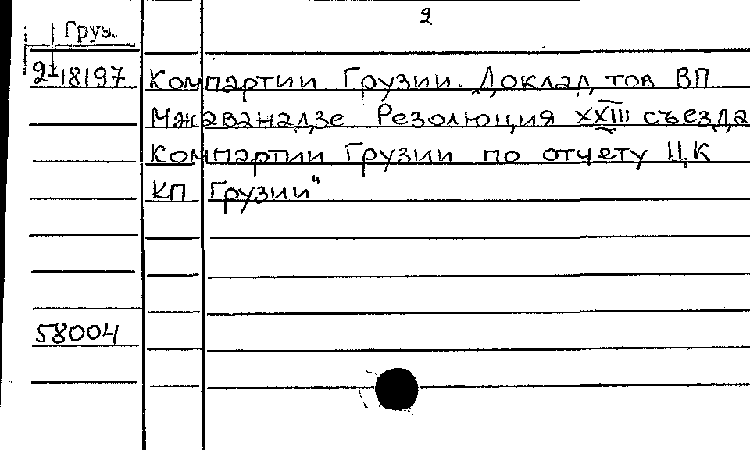 2
Груз.
2-18197 Компартии Грузии. Доклад тов ВП
Мжаванадзе Резолюция XXIII съезда
Компартии Грузии по отчету ЦК
КП Грузии"
58004